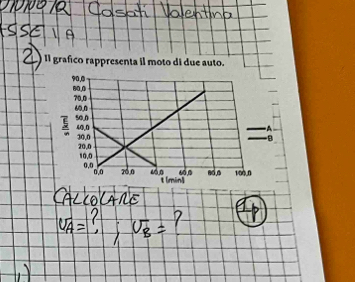 Casati Valentina
1A
2) Il grafico rappresenta il moto di due auto.
90,0
80,0
70,0
60,0
50,0
40,0
30,0
20,0
10,0
0,0
s [km]
0,0 20,0 40,0 60,0 80,0 100,0
t [min]
A
B
CALCOLARE
vA = ? ; vB = ?
1p